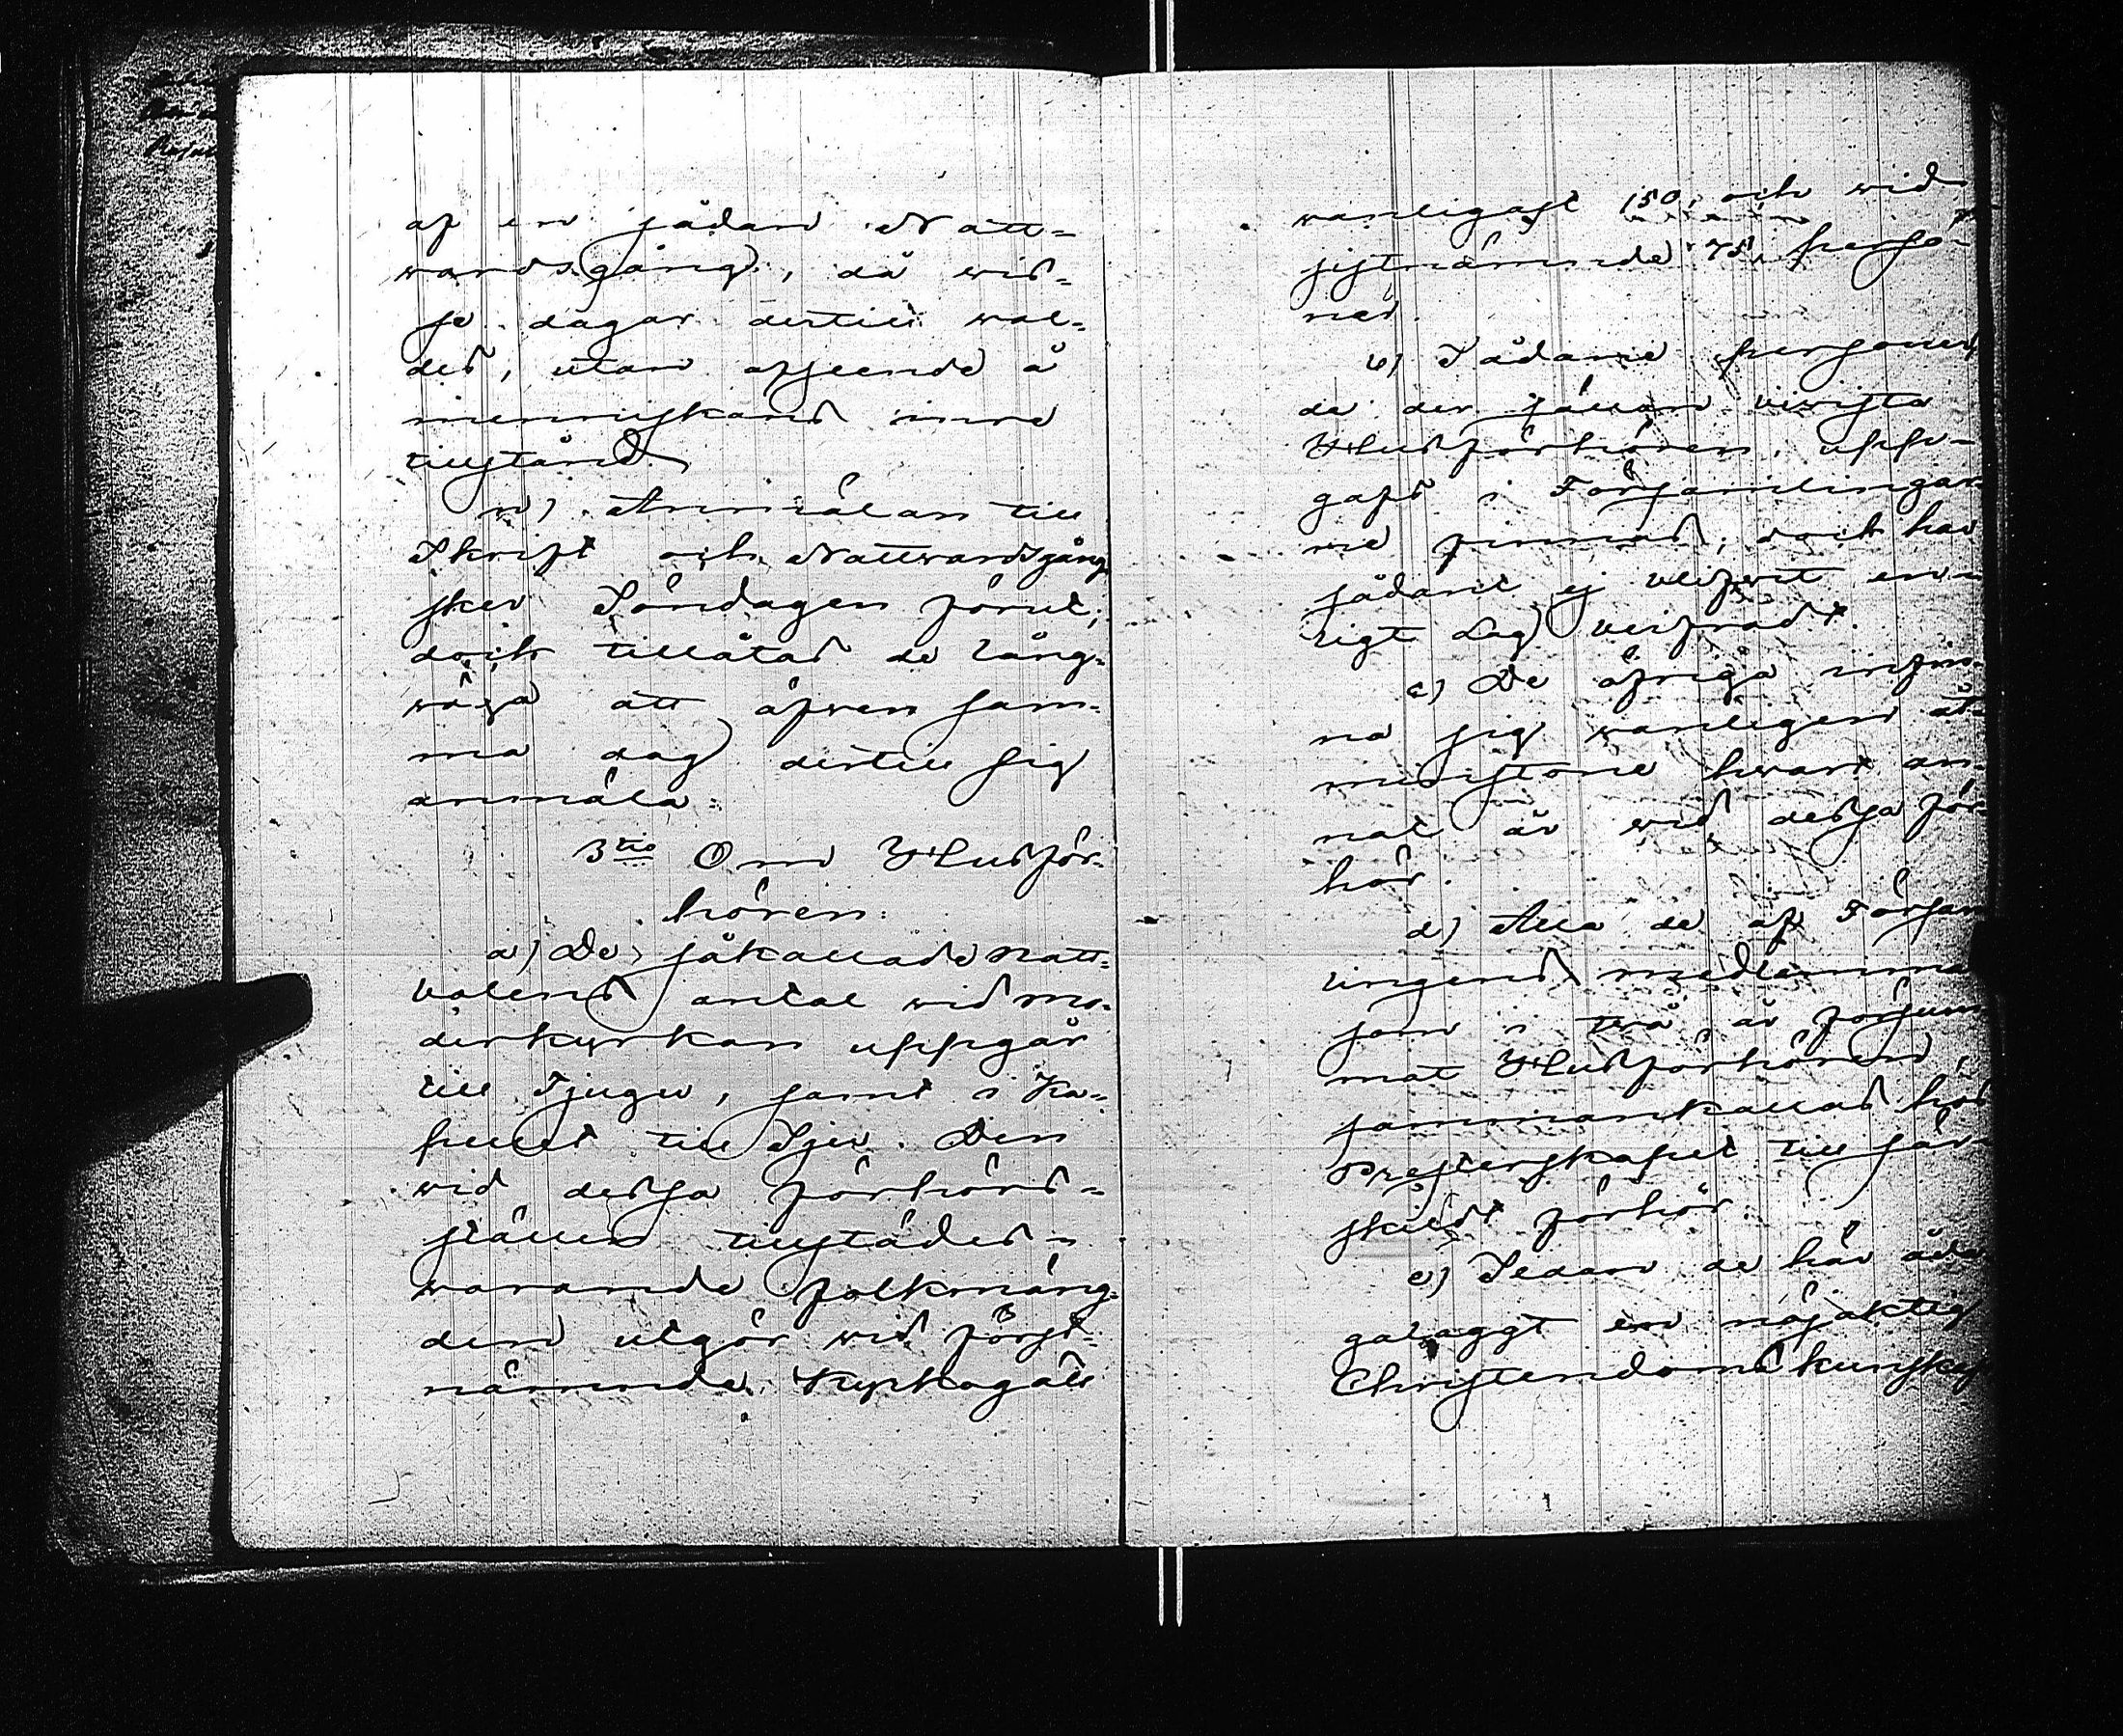 af en sådan Natt-
wardsgång, då wis-
se dagar dertill wal-
des, utan afseende å
menniskans inre
tillstånd.
n) Anmälan till
Skrift och Nattwardsgång
sker Söndagen förut;
dock tillåtas de lång-
wäga att äfwen sam-
ma dag dertill sig
anmäla.
3tio Om Husför-
hören.
a) De såkallade Natt-
walens antal wid mo-
derkyrkan uppgår
till Tjugu, samt i Ka-
pellet till Sju. Den
wid dessa förhörs-
ställen tillstädes-
warande folkmäng-
den utgör wid först-
nämnde Kyrkogäll
wanligast 150, och wid
sistnämnde 75, perso-
ner.
b) Sådane personer
de der sällan bewista
Husförhören, uppe-
hålls i Församlingar-
ne finnas, dock har
sådant ej blifwit en-
ligt Lag beifradt.
c) De öfriga infin-
na sig wanligen åt-
minstone hwart an-
nat år wid dessa för-
hör.
d) Alla de af Försam
lingens medlemmar
som i två år försum
mat Husförhören,
sammankallas hos
Presterskapet till sär-
skildt förhör.
e) Sedan de här åda
galaggt en nöjaktig
Christendoms kunskap